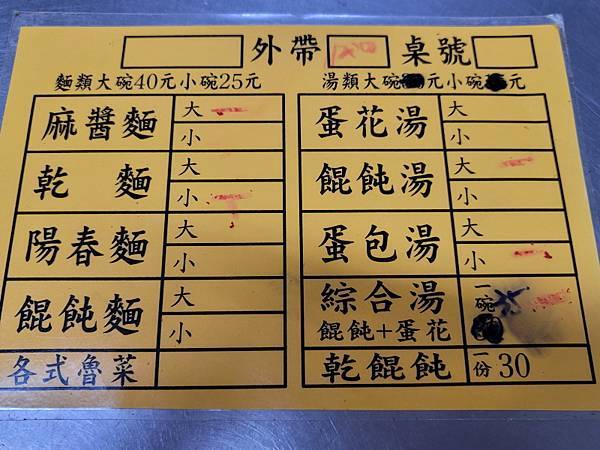 外帶 桌號
麵類大碗40元小碗25元 湯類大碗 元小碗 元
麻醬麵 大 小 蛋花湯 大 小
乾麵 大 小 餛飩湯 大 小
陽春麵 大 小 蛋包湯 大 小
餛飩麵 大 小 綜合湯 餛飩+蛋花 一碗
各式魯菜 乾餛飩 一份30